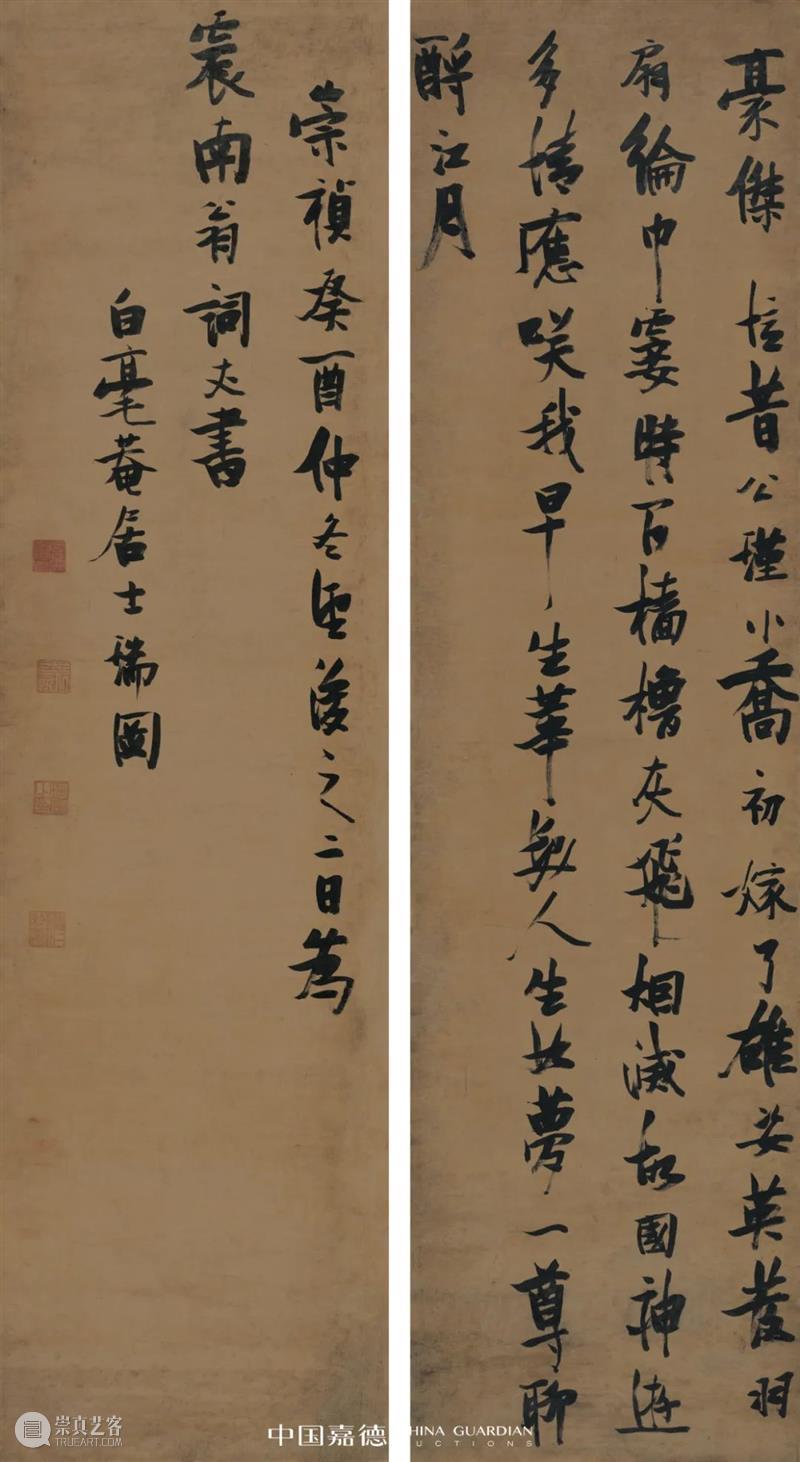 豪傑憶昔公瑾小喬初嫁了雄姿英發羽
扇綸巾霎時間檣櫓灰飛烟滅故國神遊
多情應咲我早生華髮人生如夢一尊聊
酹江月
崇禎癸酉仲冬望後之二日為
震南翁詞丈書
白毫菴居士瑞圖
崇真艺客
TRUEART.COM
中国嘉德
HINA GUARDIAN
UCTIONS